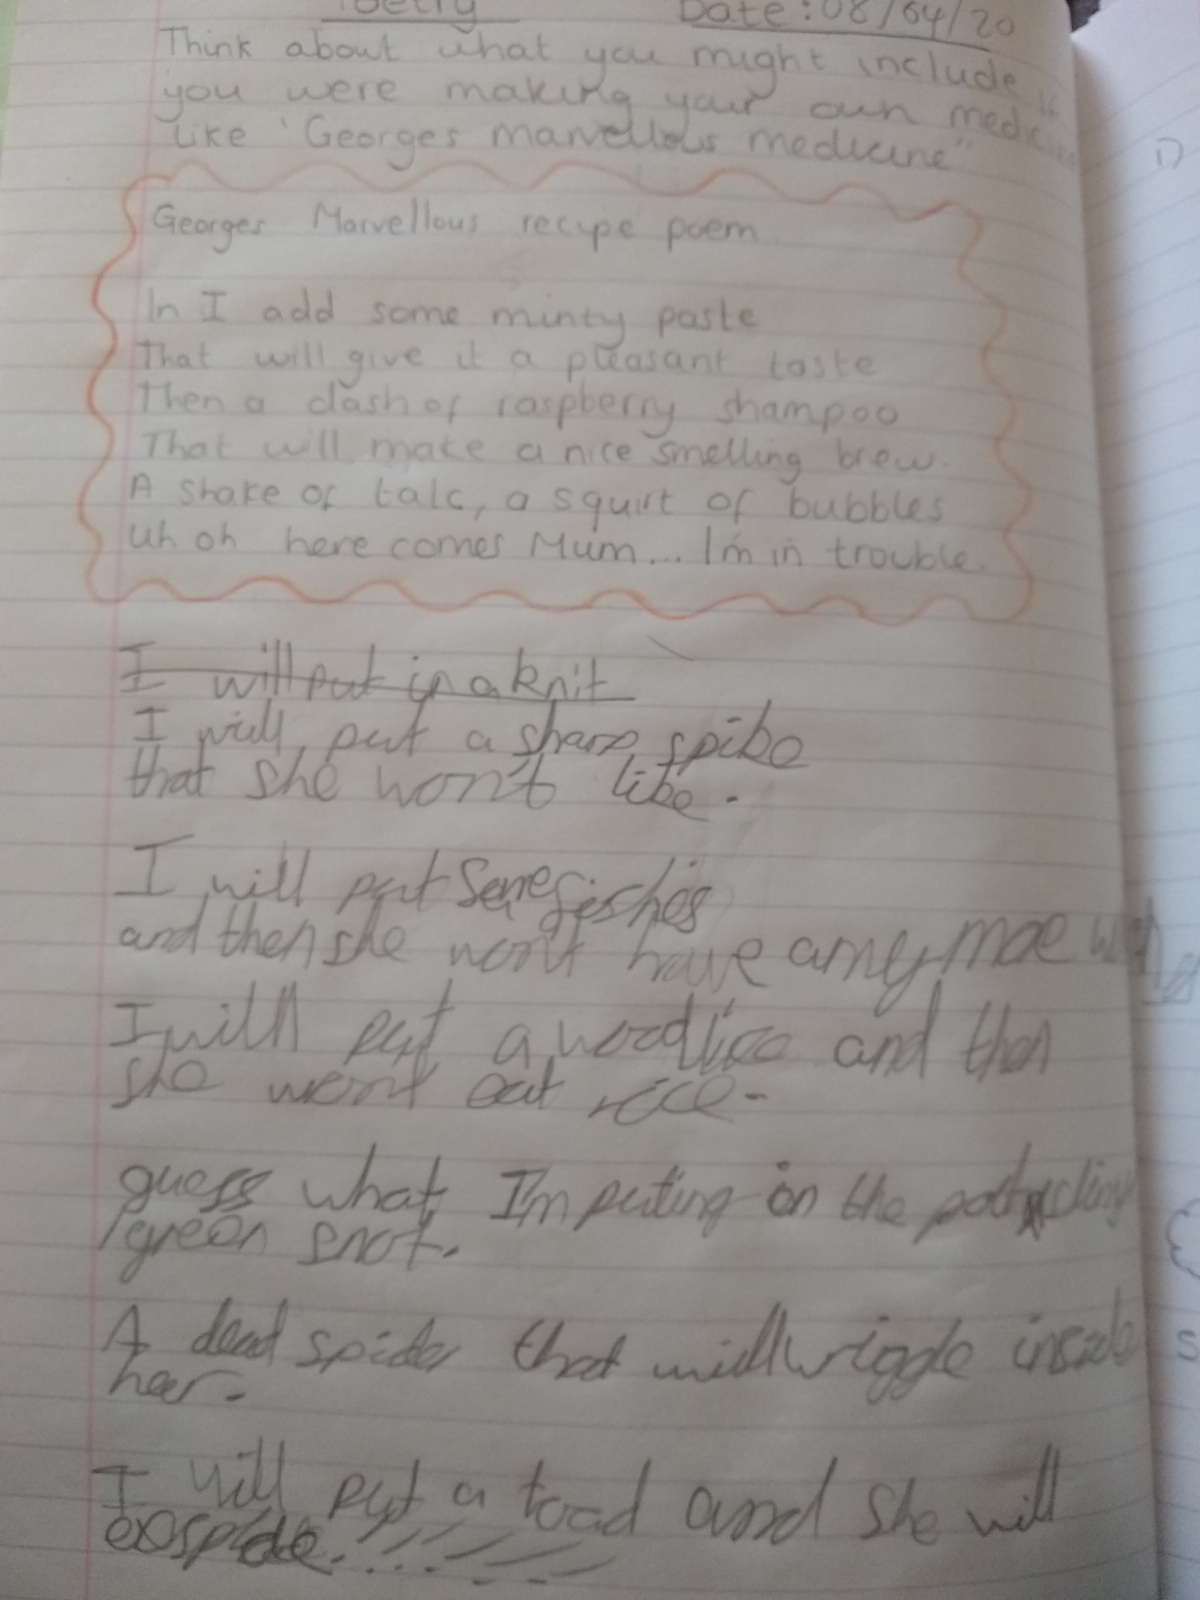 Poetry Date: 08/04/20
Think about what you might include if
you were making your own medicine
like 'Georges marvellous medicine"
Georges Marvellous recipe poem
In I add some minty paste
That will give it a pleasant taste
Then a dash of raspberry shampoo
That will make a nice smelling brew.
A shake of talc, a squirt of bubbles
Uh oh here comes Mum... I'm in trouble.
I will put in a knit
I will put a sharp spike
that she won't like.
I will put fishes
and then she won't have any more
I will put a woodlice and then
she wont eat rice.
guess what I'm puting in the
green snot.
A dead spider that will wriggle inside
her.
I will put a toad and she will